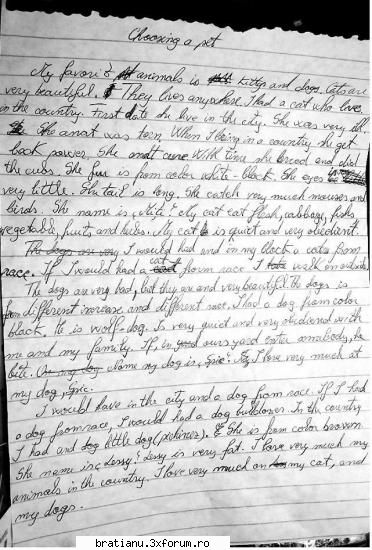 Choosing a pet
My favorit animals is kittys and dogs. Cats are
very beautiful. They lives anywhere. I had a cat who live
in the country. First date she live in the city. She was very ill.
She was torn. When I being in a country she get
back power. She With time she breed and did
the cubs. She furr is from color white-black. She eyes is
very little. She tail is long. She catch very much mouses and
birds. She name is My cat eat flesh, cabbage, fish,
vegetable, fruits and herbs. My cat is quiet and very obedient.
The dogs are very I would had and in my block a cats from
race. If I would had a cat from race I walk on outside.
The dogs are very bad, but they are and very beautiful. The dogs is
from different increase and different race. I had a dog from color
black. He is wolf-dog. Is very quiet and very obedient with
me and my family. If in ours yard enter anabody, he
bite. Name my dog is I love very much at
my dog,
I would have in the city and a dog from race. If I had
a dog from race, I would had a dog buldover. In the country
I had and little dog (pekinez). She is from color brown.
She name is Lessy. Lessy is very fat. I love very much my
animals in the country. I love very much my cat, and
my dogs.
bratianu.3xforum.ro